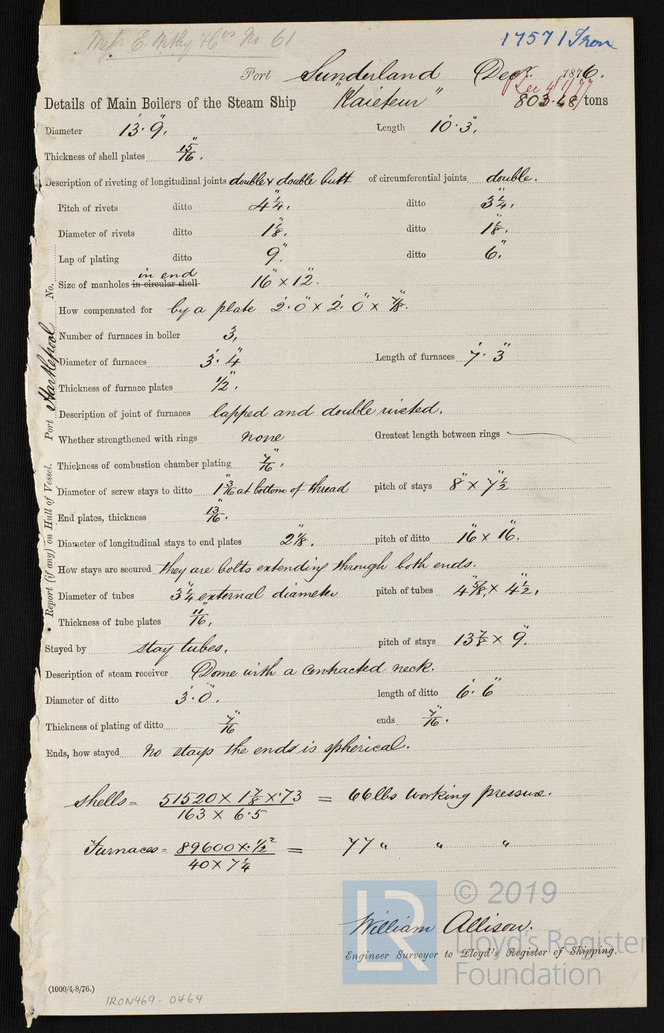 Messrs E. Withy & Cos No 61
17571 Iron
Port Sunderland Decr. 1876.
Rec 4/1/77
Details of Main Boilers of the Steam Ship "Kaieteur" 803.48 tons
Diameter 13'. 9". Length 10'. 3".
Thickness of shell plates 15/16".
Description of riveting of longitudinal joints double & double butt of circumferential joints double.
Pitch of rivets ditto 4 1/4". ditto 3 1/4".
Diameter of rivets ditto 1 1/8". ditto 1 1/8".
Lap of plating ditto 9". ditto 6".
in end
Size of manholes in circular shell 16" × 12".
How compensated for by a plate 2'. 0" × 2'. 0" × 7/8".
Number of furnaces in boiler 3,
Diameter of furnaces 3'. 4" Length of furnaces 7'. 3"
Thickness of furnace plates 1/2".
Description of joint of furnaces lapped and double riveted.
Whether strengthened with rings none Greatest length between rings
Thickness of combustion chamber plating 7/16".
Diameter of screw stays to ditto 1 3/16" at bottom of thread pitch of stays 8" × 7 1/2"
End plates, thickness 13/16".
Diameter of longitudinal stays to end plates 2 1/8". pitch of ditto 16" × 16".
How stays are secured they are bolts extending through both ends.
Diameter of tubes 3 1/4" external diameter pitch of tubes 4 5/8" × 4 1/2".
Thickness of tube plates 11/16".
Stayed by stay tubes. pitch of stays 13 7/8" × 9".
Description of steam receiver Dome with a contracted neck.
Diameter of ditto 3'. 0". length of ditto 6'. 6"
Thickness of plating of ditto 7/16" ends 7/16".
Ends, how stayed No stays the ends is spherical.
Shells = 51520 × 1 7/8 × .73 / 163 × 6.5 = 66 lbs working pressure.
Furnaces = 89600 × 1/2² / 40 × 7 1/4 = 77 " " "
William Allison.
Engineer Surveyor to Lloyd's Register of Shipping.
Report (if any) on Hull of Vessel. Port Hartlepool No.
(1000/4/8/76.)
IRON469-0464
LR © 2019
Lloyd's Register
Foundation